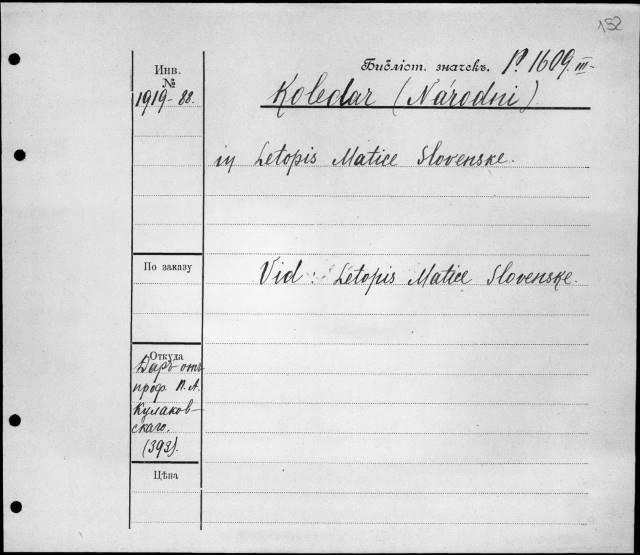 152
Инв.
№
1919-88.
Библіот. значекъ. P. 1609. III-
Koledar (Národni).
in Letopis Matice Slovenske.
По заказу
Vid: Letopis Matice Slovenske.
Откуда
Даръ отъ
проф. П. А.
Кулаков-
скаго.
(393).
Цѣна